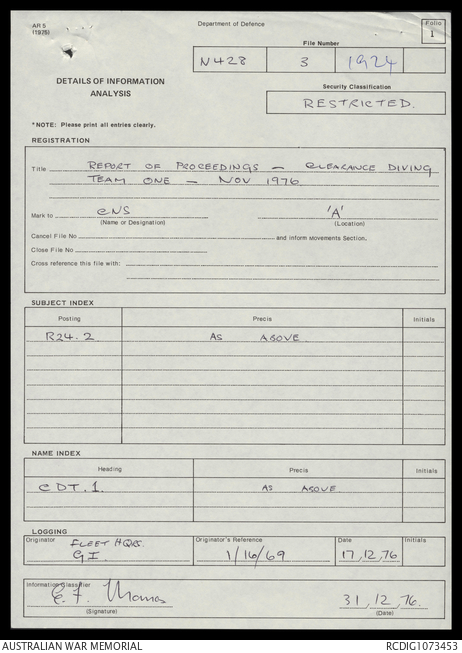 AR 5
(1975)
Department of Defence
Folio
1
File Number
N428 3 1924
DETAILS OF INFORMATION
ANALYSIS
Security Classification
RESTRICTED.
*NOTE: Please print all entries clearly.
REGISTRATION
Title REPORT OF PROCEEDINGS - CLEARANCE DIVING
TEAM ONE - NOV 1976
Mark to CNS 'A'
(Name or Designation) (Location)
Cancel File No and inform Movements Section.
Close File No
Cross reference this file with:
SUBJECT INDEX
Posting Precis Initials
R24.2 AS ABOVE.
NAME INDEX
Heading Precis Initials
CDT.1. AS ABOVE.
LOGGING
Originator Originator's Reference Date Initials
FLEET HQRS.
GI 1/16/69 17,12,76
Information Classifier
E. F. Thomas 31,12,76.
(Signature) (Date)
AUSTRALIAN WAR MEMORIAL RCDIG1073453